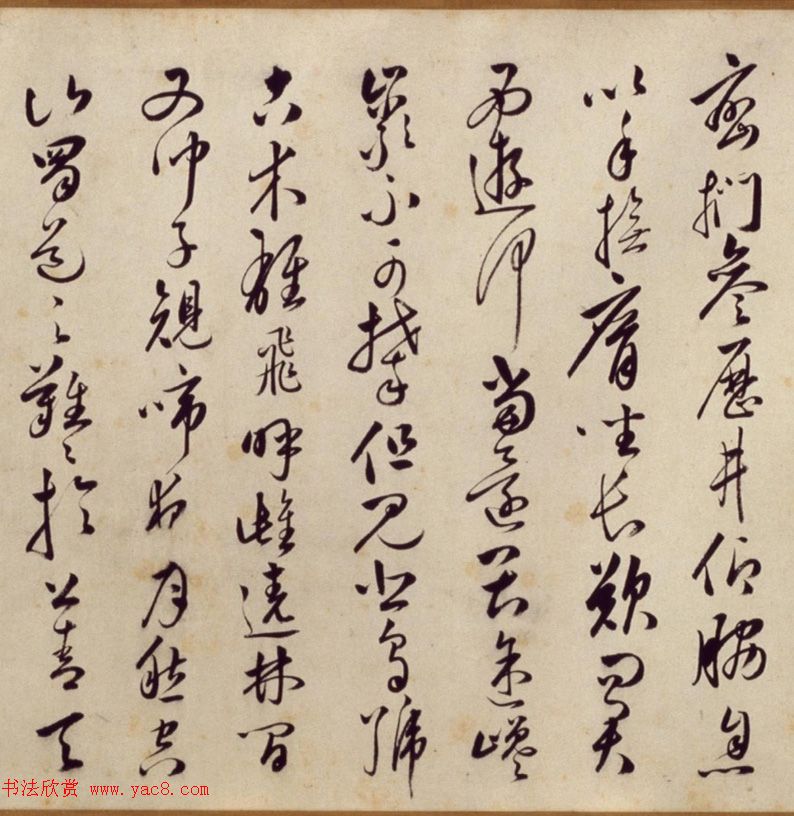 巒捫參歷井仰脅息
以手撫膺坐長歎問君
西遊何當還畏途巉
巖不可攀但見悲鳥號
古木雄飛呼雌遶林間
又聞子規啼夜月愁空
山蜀道之難難於上青天
书法欣赏 www.yac8.com